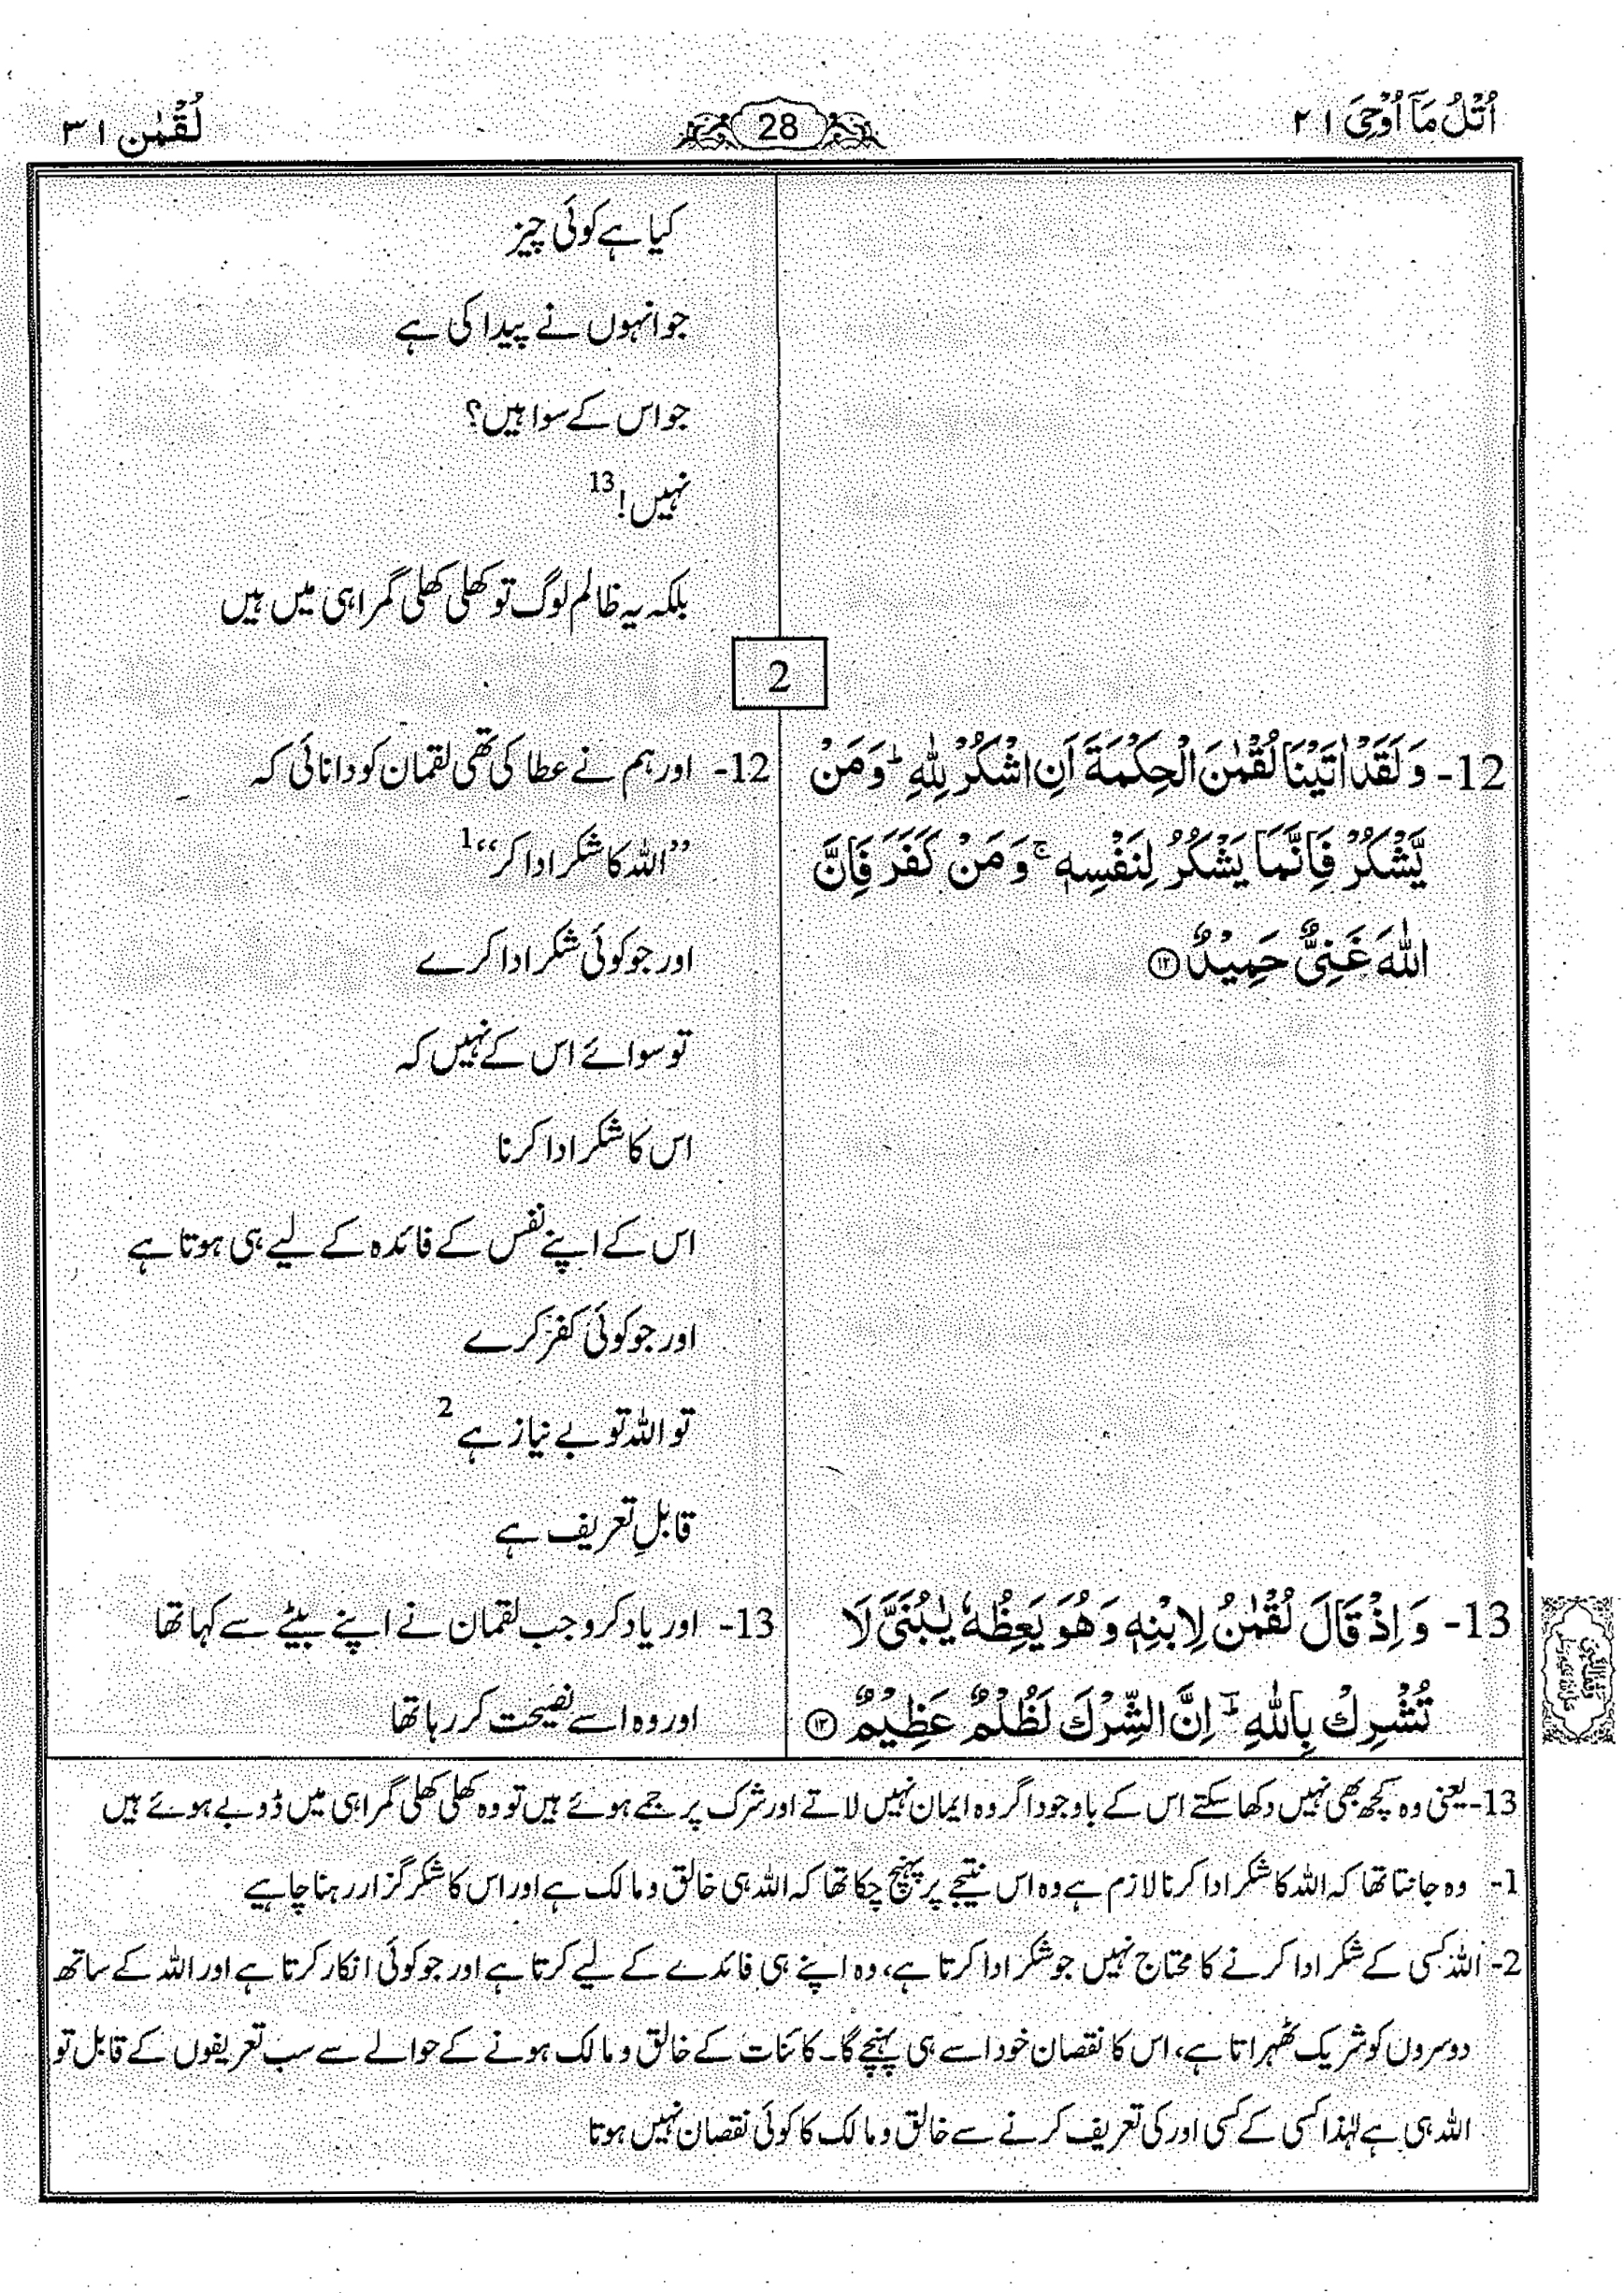 اُتْلُ مَاۤ اُوْحِیَ ۲۱
28
لُقْمٰن ۳۱
کیا ہے کوئی چیز
جو انہوں نے پیدا کی ہے
جو اس کے سوا ہیں؟
نہیں! 13
بلکہ یہ ظالم لوگ تو کھلی کھلی گمراہی میں ہیں
2
12- وَ لَقَدْ اٰتَیْنَا لُقْمٰنَ الْحِكْمَةَ اَنِ اشْكُرْ لِلّٰهِ ؕ وَ مَنْ
یَّشْكُرْ فَاِنَّمَا یَشْكُرُ لِنَفْسِهٖ ۚ وَ مَنْ كَفَرَ فَاِنَّ
اللّٰهَ غَنِیٌّ حَمِیْدٌ ۱۲
12- اور ہم نے عطا کی تھی لقمان کو دانائی کہ
”اللہ کا شکر ادا کر“ 1
اور جو کوئی شکر ادا کرے
تو سوائے اس کے نہیں کہ
اس کا شکر ادا کرنا
اس کے اپنے نفس کے فائدہ کے لیے ہی ہوتا ہے
اور جو کوئی کفر کرے
تو اللہ تو بے نیاز ہے 2
قابلِ تعریف ہے
13- وَ اِذْ قَالَ لُقْمٰنُ لِابْنِهٖ وَ هُوَ یَعِظُهٗ یٰبُنَیَّ لَا
تُشْرِكْ بِاللّٰهِ ؔؕ اِنَّ الشِّرْكَ لَظُلْمٌ عَظِیْمٌ ۱۳
13- اور یاد کرو جب لقمان نے اپنے بیٹے سے کہا تھا
اور وہ اسے نصیحت کر رہا تھا
13- یعنی وہ کچھ بھی نہیں دکھا سکتے اس کے باوجود اگر وہ ایمان نہیں لاتے اور شرک پر جمے ہوئے ہیں تو وہ کھلی کھلی گمراہی میں ڈوبے ہوئے ہیں
1- وہ جانتا تھا کہ اللہ کا شکر ادا کرنا لازم ہے وہ اس نتیجے پر پہنچ چکا تھا کہ اللہ ہی خالق و مالک ہے اور اس کا شکر گزار رہنا چاہیے
2- اللہ کسی کے شکر ادا کرنے کا محتاج نہیں جو شکر ادا کرتا ہے، وہ اپنے ہی فائدے کے لیے کرتا ہے اور جو کوئی انکار کرتا ہے اور اللہ کے ساتھ
دوسروں کو شریک ٹھہراتا ہے، اس کا نقصان خود اسے ہی پہنچے گا۔ کائنات کے خالق و مالک ہونے کے حوالے سے سب تعریفوں کے قابل تو
اللہ ہی ہے لہٰذا کسی کے کسی اور کی تعریف کرنے سے خالق و مالک کا کوئی نقصان نہیں ہوتا